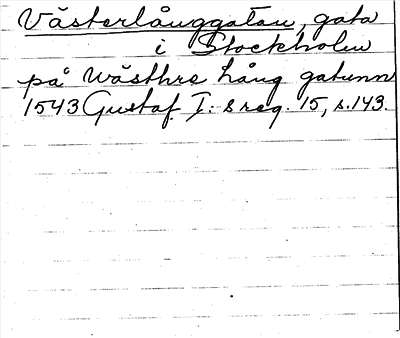 Västerlånggatan, gata
i Stockholm
på Wästhre lång gatunn
1543 Gustaf I:s reg. 15, s.143.